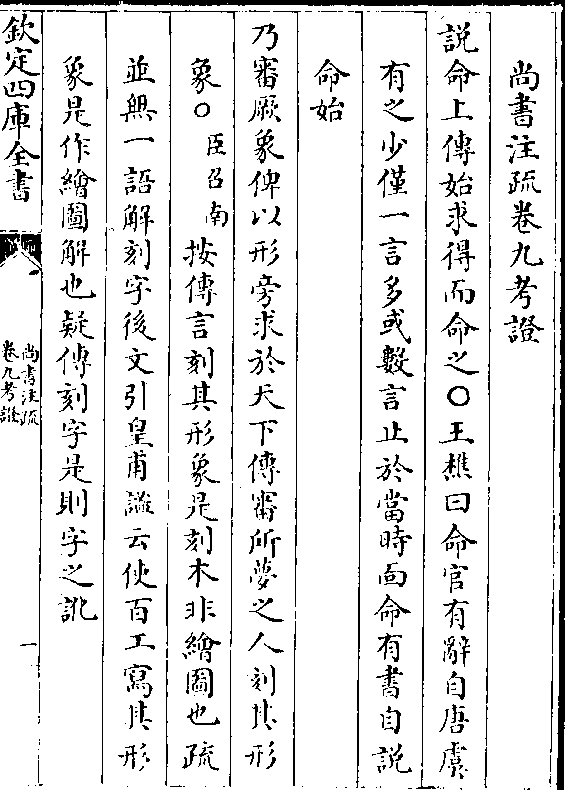 尚書注疏卷九考證
説命上傳始求得而命之〇王樵曰命官有辭自唐虞
有之少僅一言多或數言止於當時面命有書自説
命始
乃審厥象俾以形旁求於天下傳審所夢之人刻其形
象〇臣召南按傳言刻其形象是刻木非繪圖也疏
並無一語解刻字後文引皇甫謐云使百工寫其形
象是作繪圖解也疑傳刻字是則字之訛
欽定四庫全書
尚書注疏
卷九考證
一